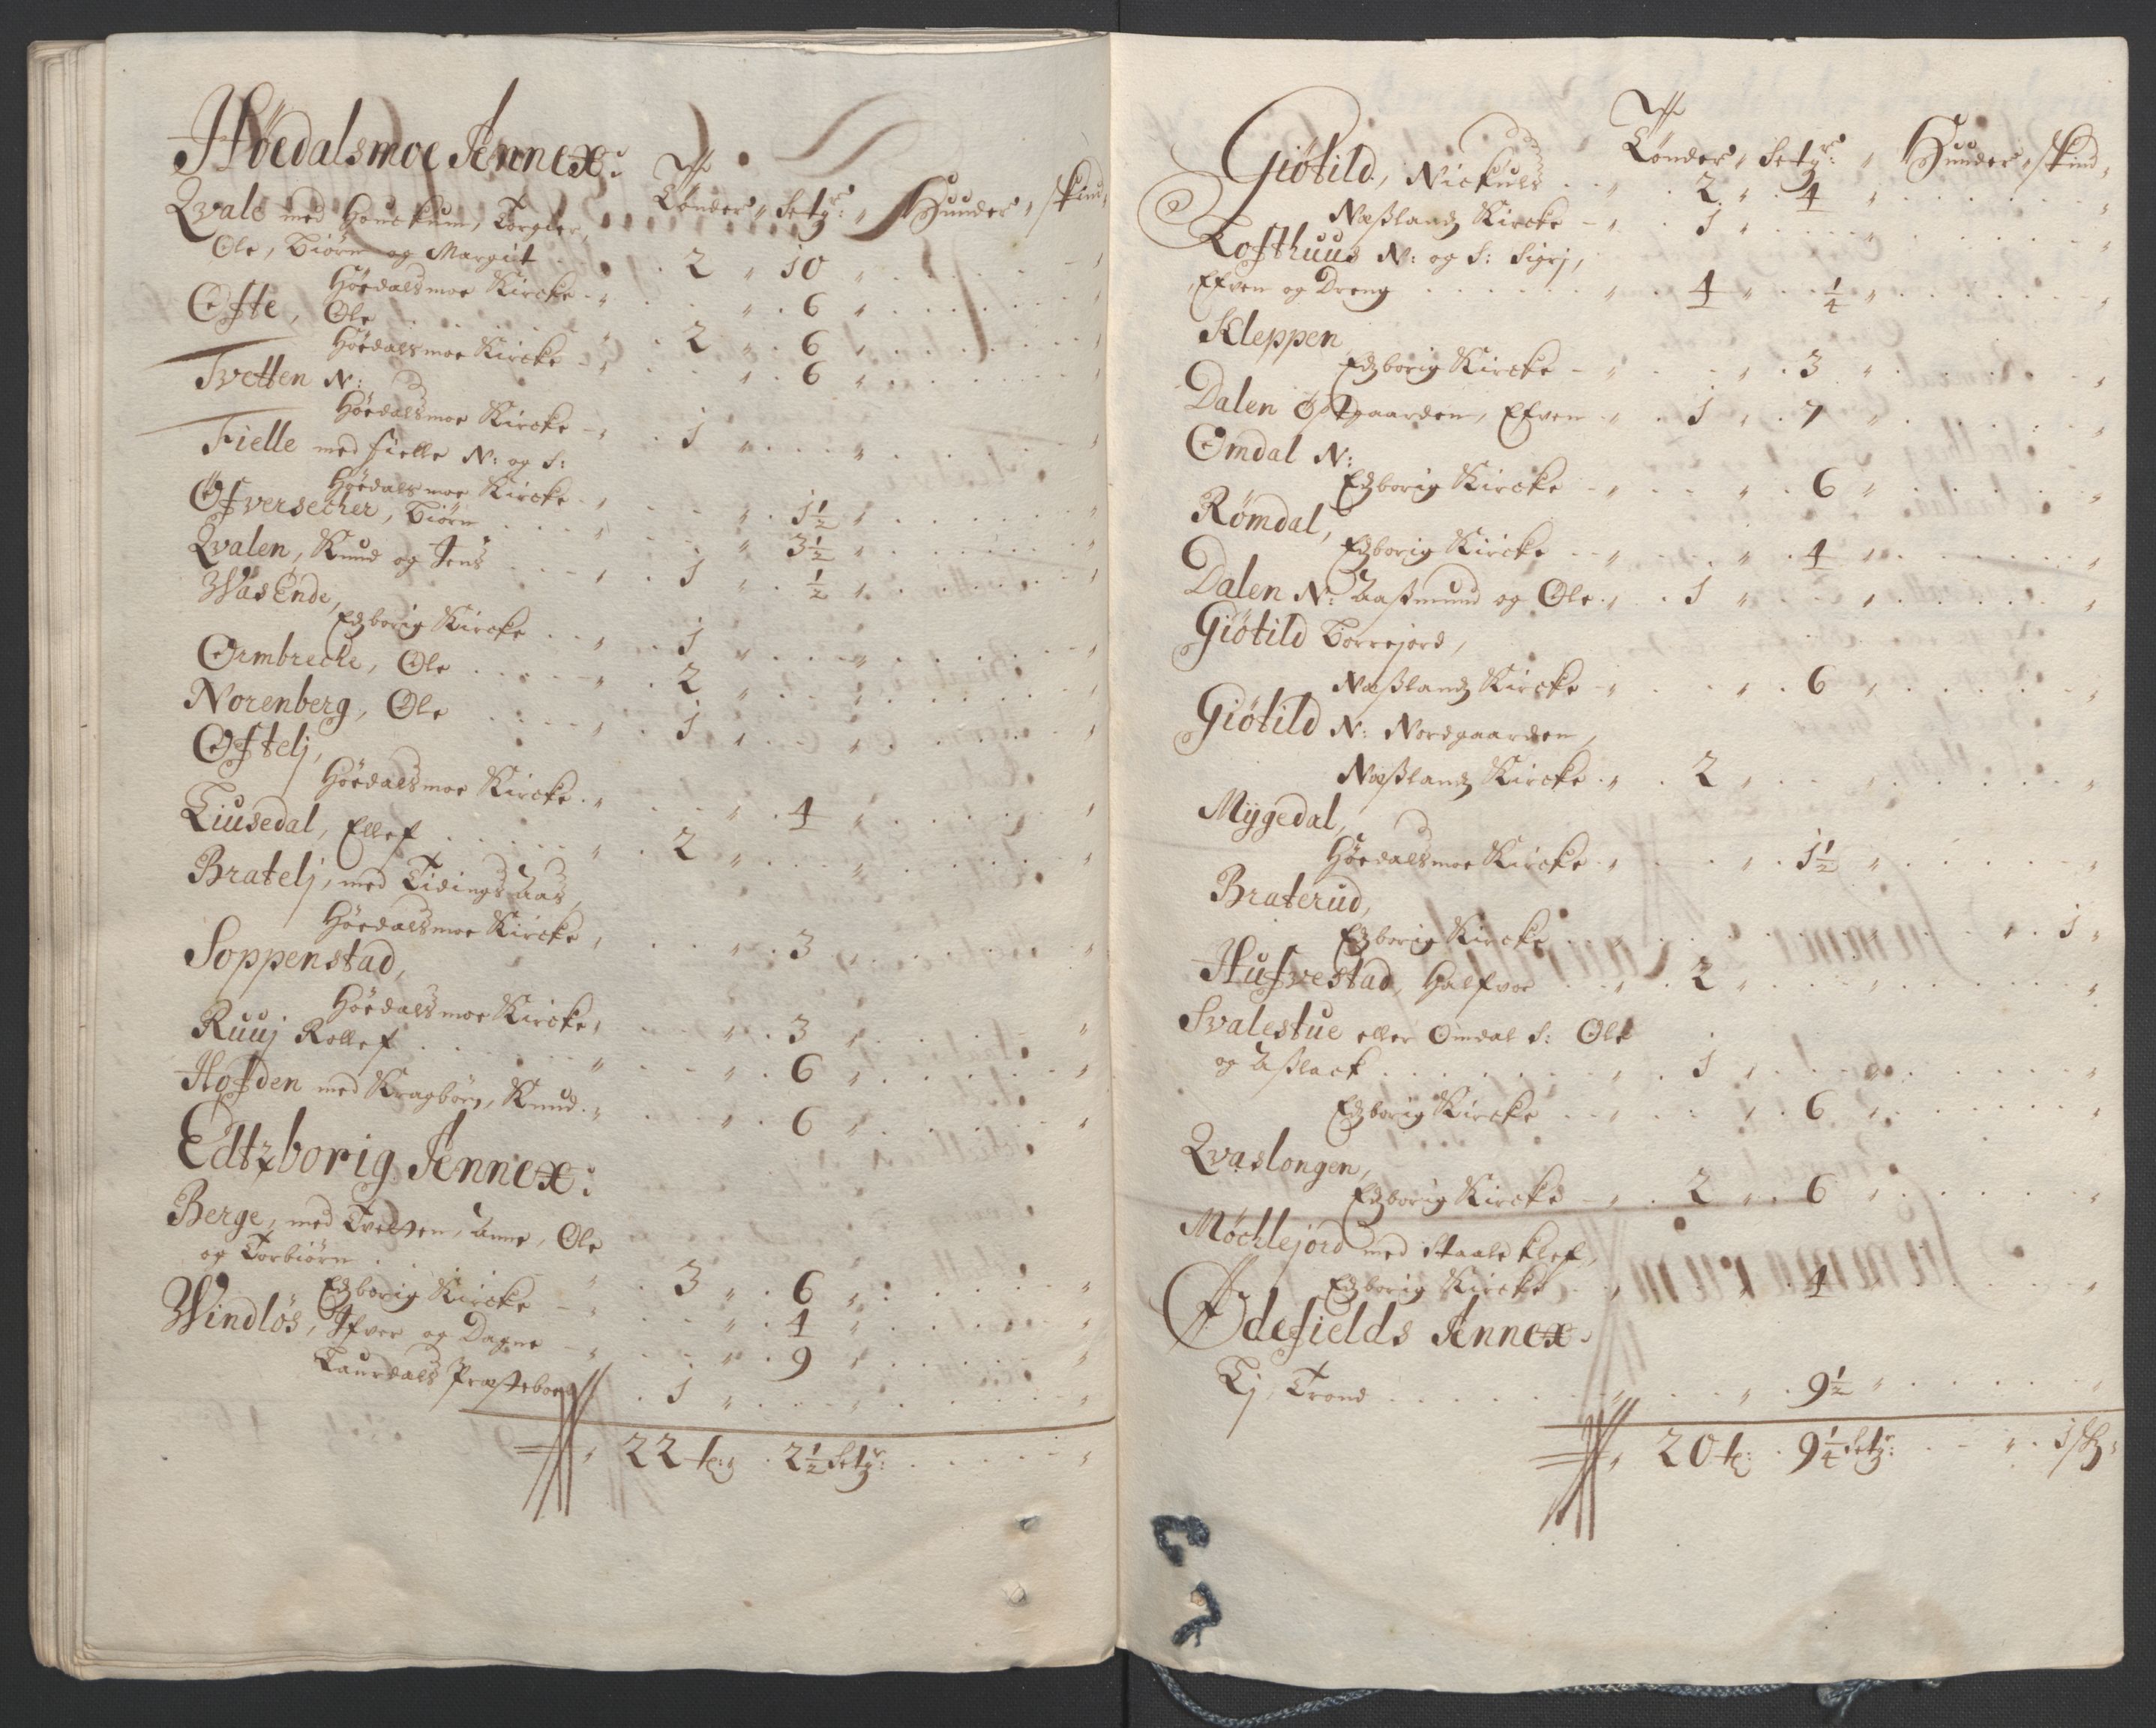 Høedalsmoe Annex:
Tønder, Setgr: Hunder, skind,
Qvale med Houckum, Torgier,
Ole, Biørn og Margiit . . 2 „ 10 „
Høedalsmoe Kircke - „ . . „ . 6 „
Ofte, Ole . . . „ . 2 „ . 6 „
Høedalsmoe Kircke - „ . . „ . 6 „
Tvetten N:
Høedalsmoe Kircke - „ . 1 „ . . „
Fielle med Fielle N: og S:
Høedalsmoe Kircke - „ . . „ . 1½ „
Ofversecher, Biørn . . . „ . . „ 3½ „
Qvalen, Knud og Jens . . - „ . 1 „ . ½ „
Waas Ende,
Edzborig Kircke . . „ . 1 „ . . „
Ormbreche, Ole . . . . „ . 2 „ . . „
Norenberg, Ole . . . . „ . 1 „ . . „
Oftelj,
Høedalsmoe Kircke . „ . . „ . 4 „
Liusedal, Ellef . . . . „ . 2 „ . . „
Bratelj, med Tidings Aas,
Høedalsmoe Kircke „ . . „ . 3 „
Soppenstad,
Høedalsmoe Kircke „ . . „ . 3 „
Ruuj Rollef . . . . „ . . „ . 6 „
Hofden med Kragbørg, Knud . „ . . „ . 6 „
Edtzborig Annex:
Berge, med Tvetten, Anne, Ole
og Torbiørn . . . . „ . 3 „ . 6 „
Edzborig Kircke - „ . . „ . 4 „
Windløs, Ifver og Dagne - „ . . „ . 9 „
Laurdals Præstebord . 1 „ . . „
„ 22 t: . 2½ Setgr:
Tønder, Setgr: „ Hunder, skind,
Giøtild, Nickuls . . „ . 2 „ . 4 „
Næßlandz Kircke - „ . 1 „ . . „
Lofthuus N: og S: Sigrj,
Efven og Dreng . . . . „ . 4 „ . ¼ „
Kleppen
Edzborig Kircke - „ . - „ . 3 „
Dalen Østgaarden, Efven - „ . 1 „ . 7 „
Omdal N:
Edzborig Kircke - „ . - „ . 6 „
Rømdal,
Edzborig Kircke - - „ . . „ . 4 „
Dalen N: Aaßmund og Ole . „ . 1 „ . . „
Giøtild Borrejord,
Næßlandz Kircke - „ . . „ . 6 „
Giøtild N: Nordgaarden,
Næßlandz Kircke . „ . 2 „ . . „
Mÿgedal,
Høedalsmoe Kircke . „ . . „ . 1½ „
Braterud,
Edzborig Kircke . . . . . . „ . 1 „
Hufvestad, Halfvor . . „ . 2 „ . . „
Svalestue eller Omdal S: Ole
og Aßlack . . . . „ . 1 „ . . „
Edzborig Kircke . . „ . . „ . 6 „
Qvaslongen,
Edzborig Kircke - „ . 2 „ . 6 „
Møchlejord med Staaleklef,
Edzborig Kircke . . „ . . . 4
Ødefields Annex.
Lj, Trond . . . . „ . . „ . 9½ „
„ 20 t: . 9¼ Setgr: . - „ . 1 sk: